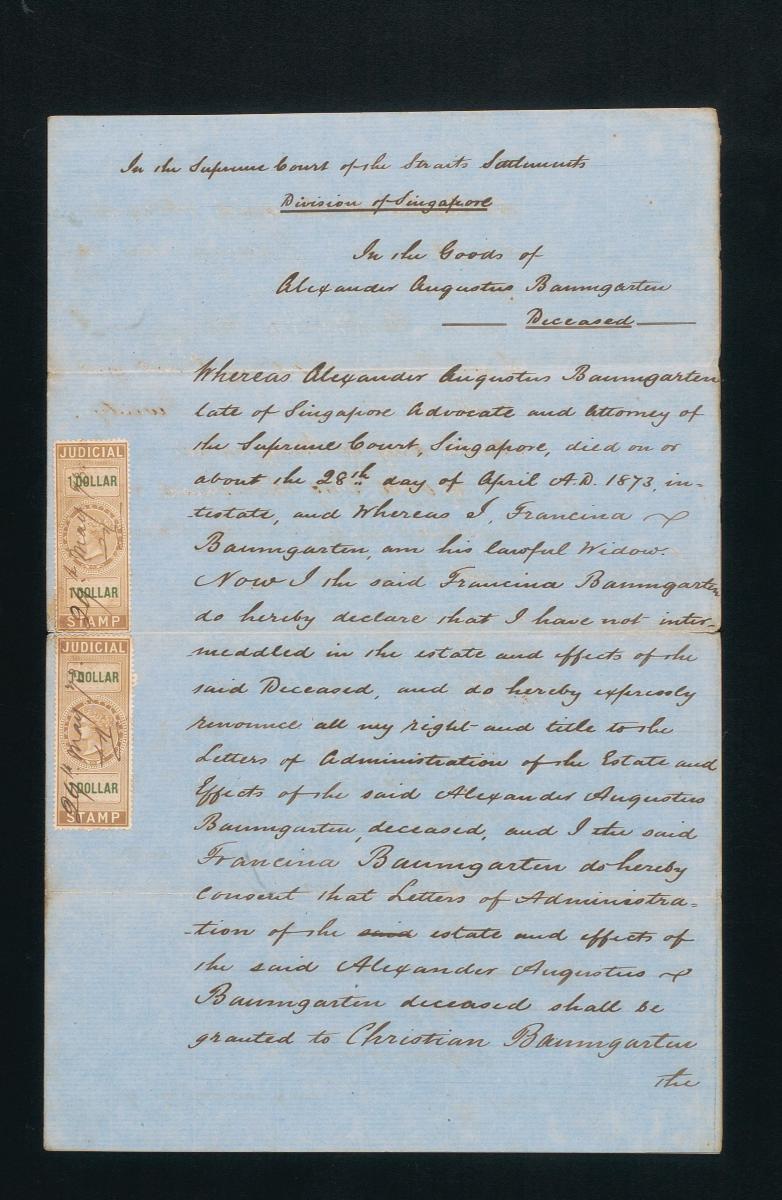 In the Supreme Court of the Straits Settlements
Division of Singapore
In the Goods of
Alexander Augustus Baumgarten
Deceased
Whereas Alexander Augustus Baumgarten
late of Singapore Advocate and Attorney of
the Supreme Court, Singapore, died on or
about the 28th day of April A.D. 1873, in-
-testate, and Whereas I, Francina
Baumgarten, am his lawful Widow.
Now I the said Francina Baumgarten
do hereby declare that I have not inter-
meddled in the estate and effects of the
said Deceased, and do hereby expressly
renounce all my right and title to the
Letters of Administration of the Estate and
Effects of the said Alexander Augustus
Baumgarten, deceased, and I the said
Francina Baumgarten do hereby
consent that Letters of Administra=
-tion of the said estate and effects of
the said Alexander Augustus
Baumgarten deceased shall be
granted to Christian Baumgarten
the
JUDICIAL
1 DOLLAR
1 DOLLAR
STAMP
May
JUDICIAL
1 DOLLAR
1 DOLLAR
STAMP
May